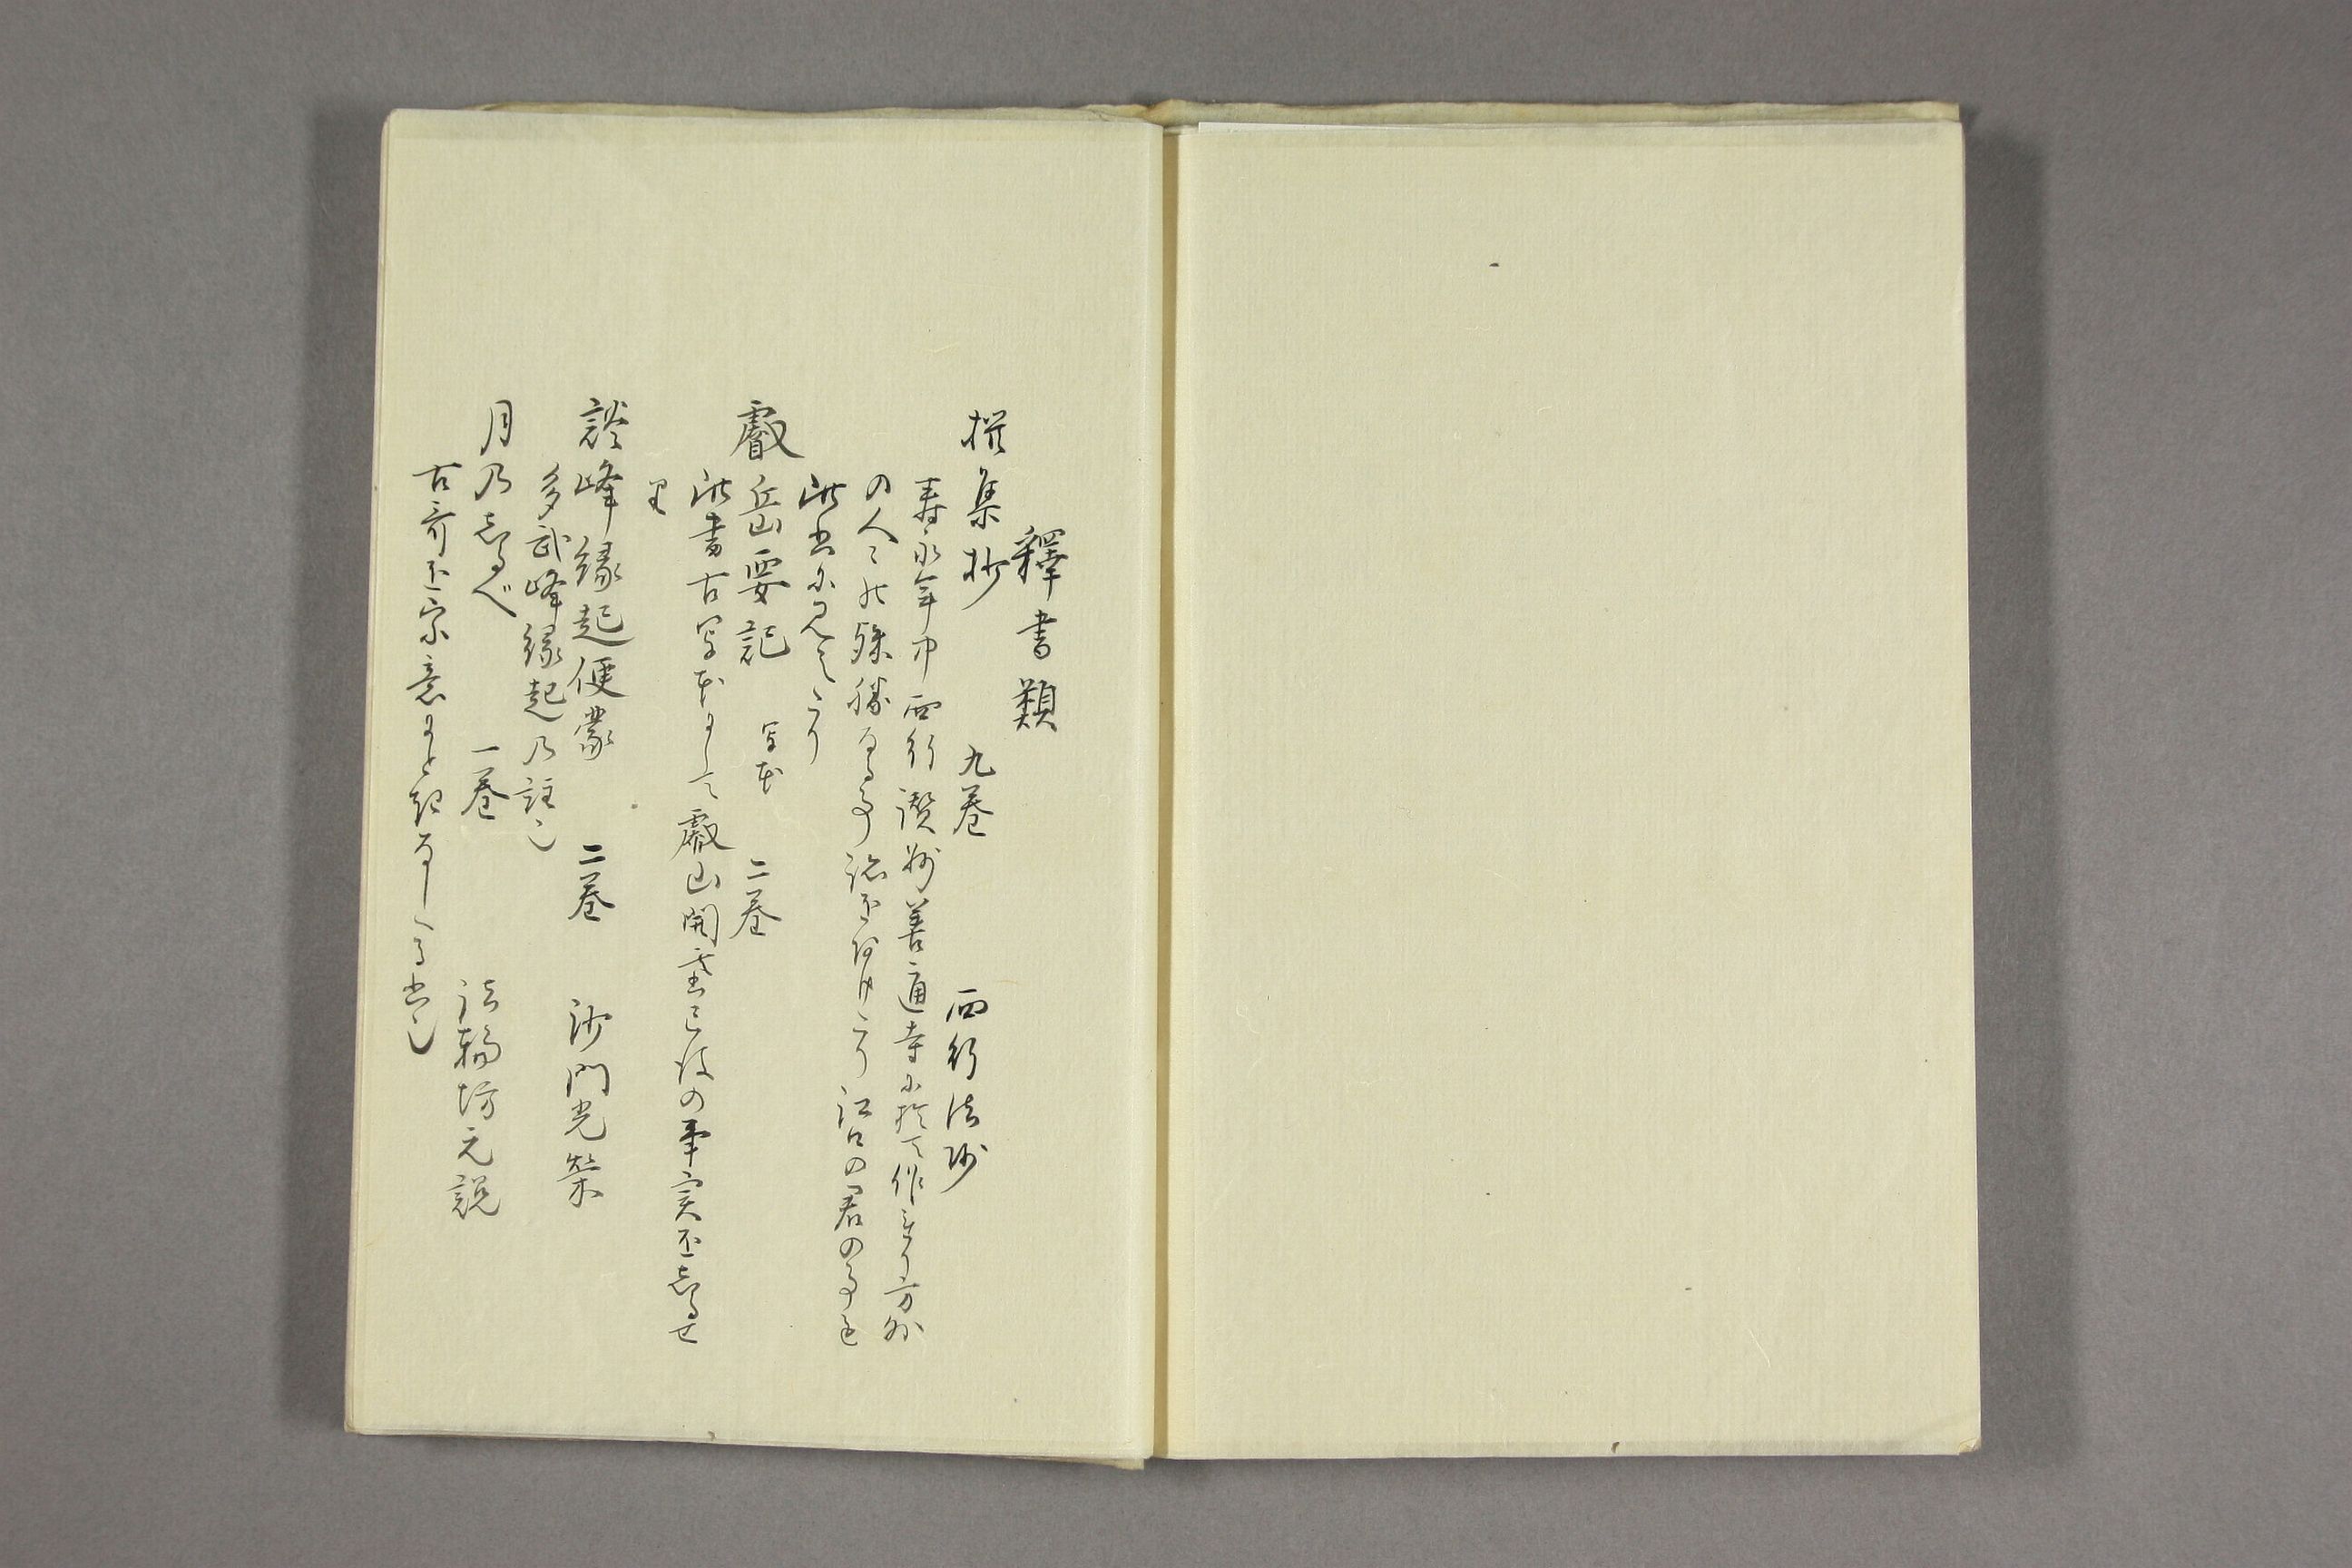 釋書類
撰集抄　九巻　西行法師
寿永年中西行讃州善通寺に於て作れり方外
の人々の殊勝なる事諸を挙けたり江口の君の事も
此書に見えたり
叡岳要記　写本　二巻
此書古写本にして叡山開基已後の事実を志るせ
り
談峰縁起便蒙　二巻　沙門光栄
多武峰縁起乃註也
月乃志るべ　一巻　法輪坊元説
古哥を宗意にとき なしたる書也